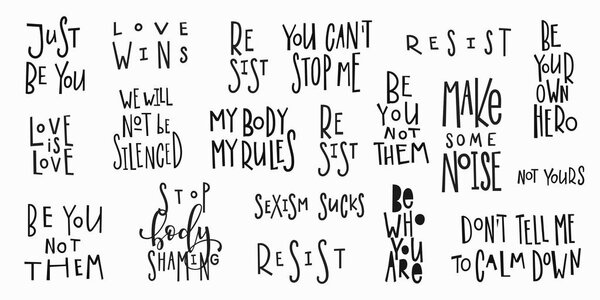 JUST
BE YOU
LOVE
WINS
RE
SIST
YOU CAN'T
STOP ME
RESIST
BE
YOUR
OWN
HERO
LOVE
iS
LOVE
WE WILL
NOT be
SILENCED
MY BODY
MY RULES
RE
SIST
BE
YOU
NOT
THEM
MAKE
SOME
NOISE
NOT YOURS
BE YOU
NOT
THEM
STOP
body
SHAMING
SEXISM SUCKS
RESIST
Be
WHO
YOU
ARE
DON'T TELL ME
TO CALM DOWN